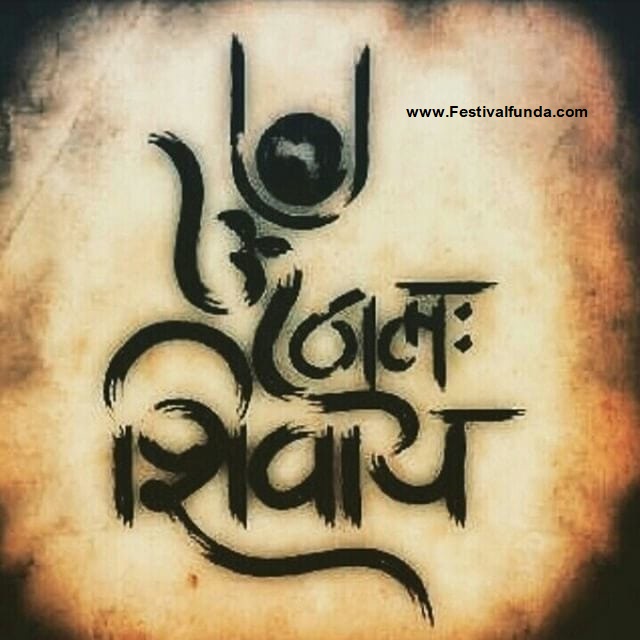 www.Festivalfunda.com
ॐ नमः
शिवाय